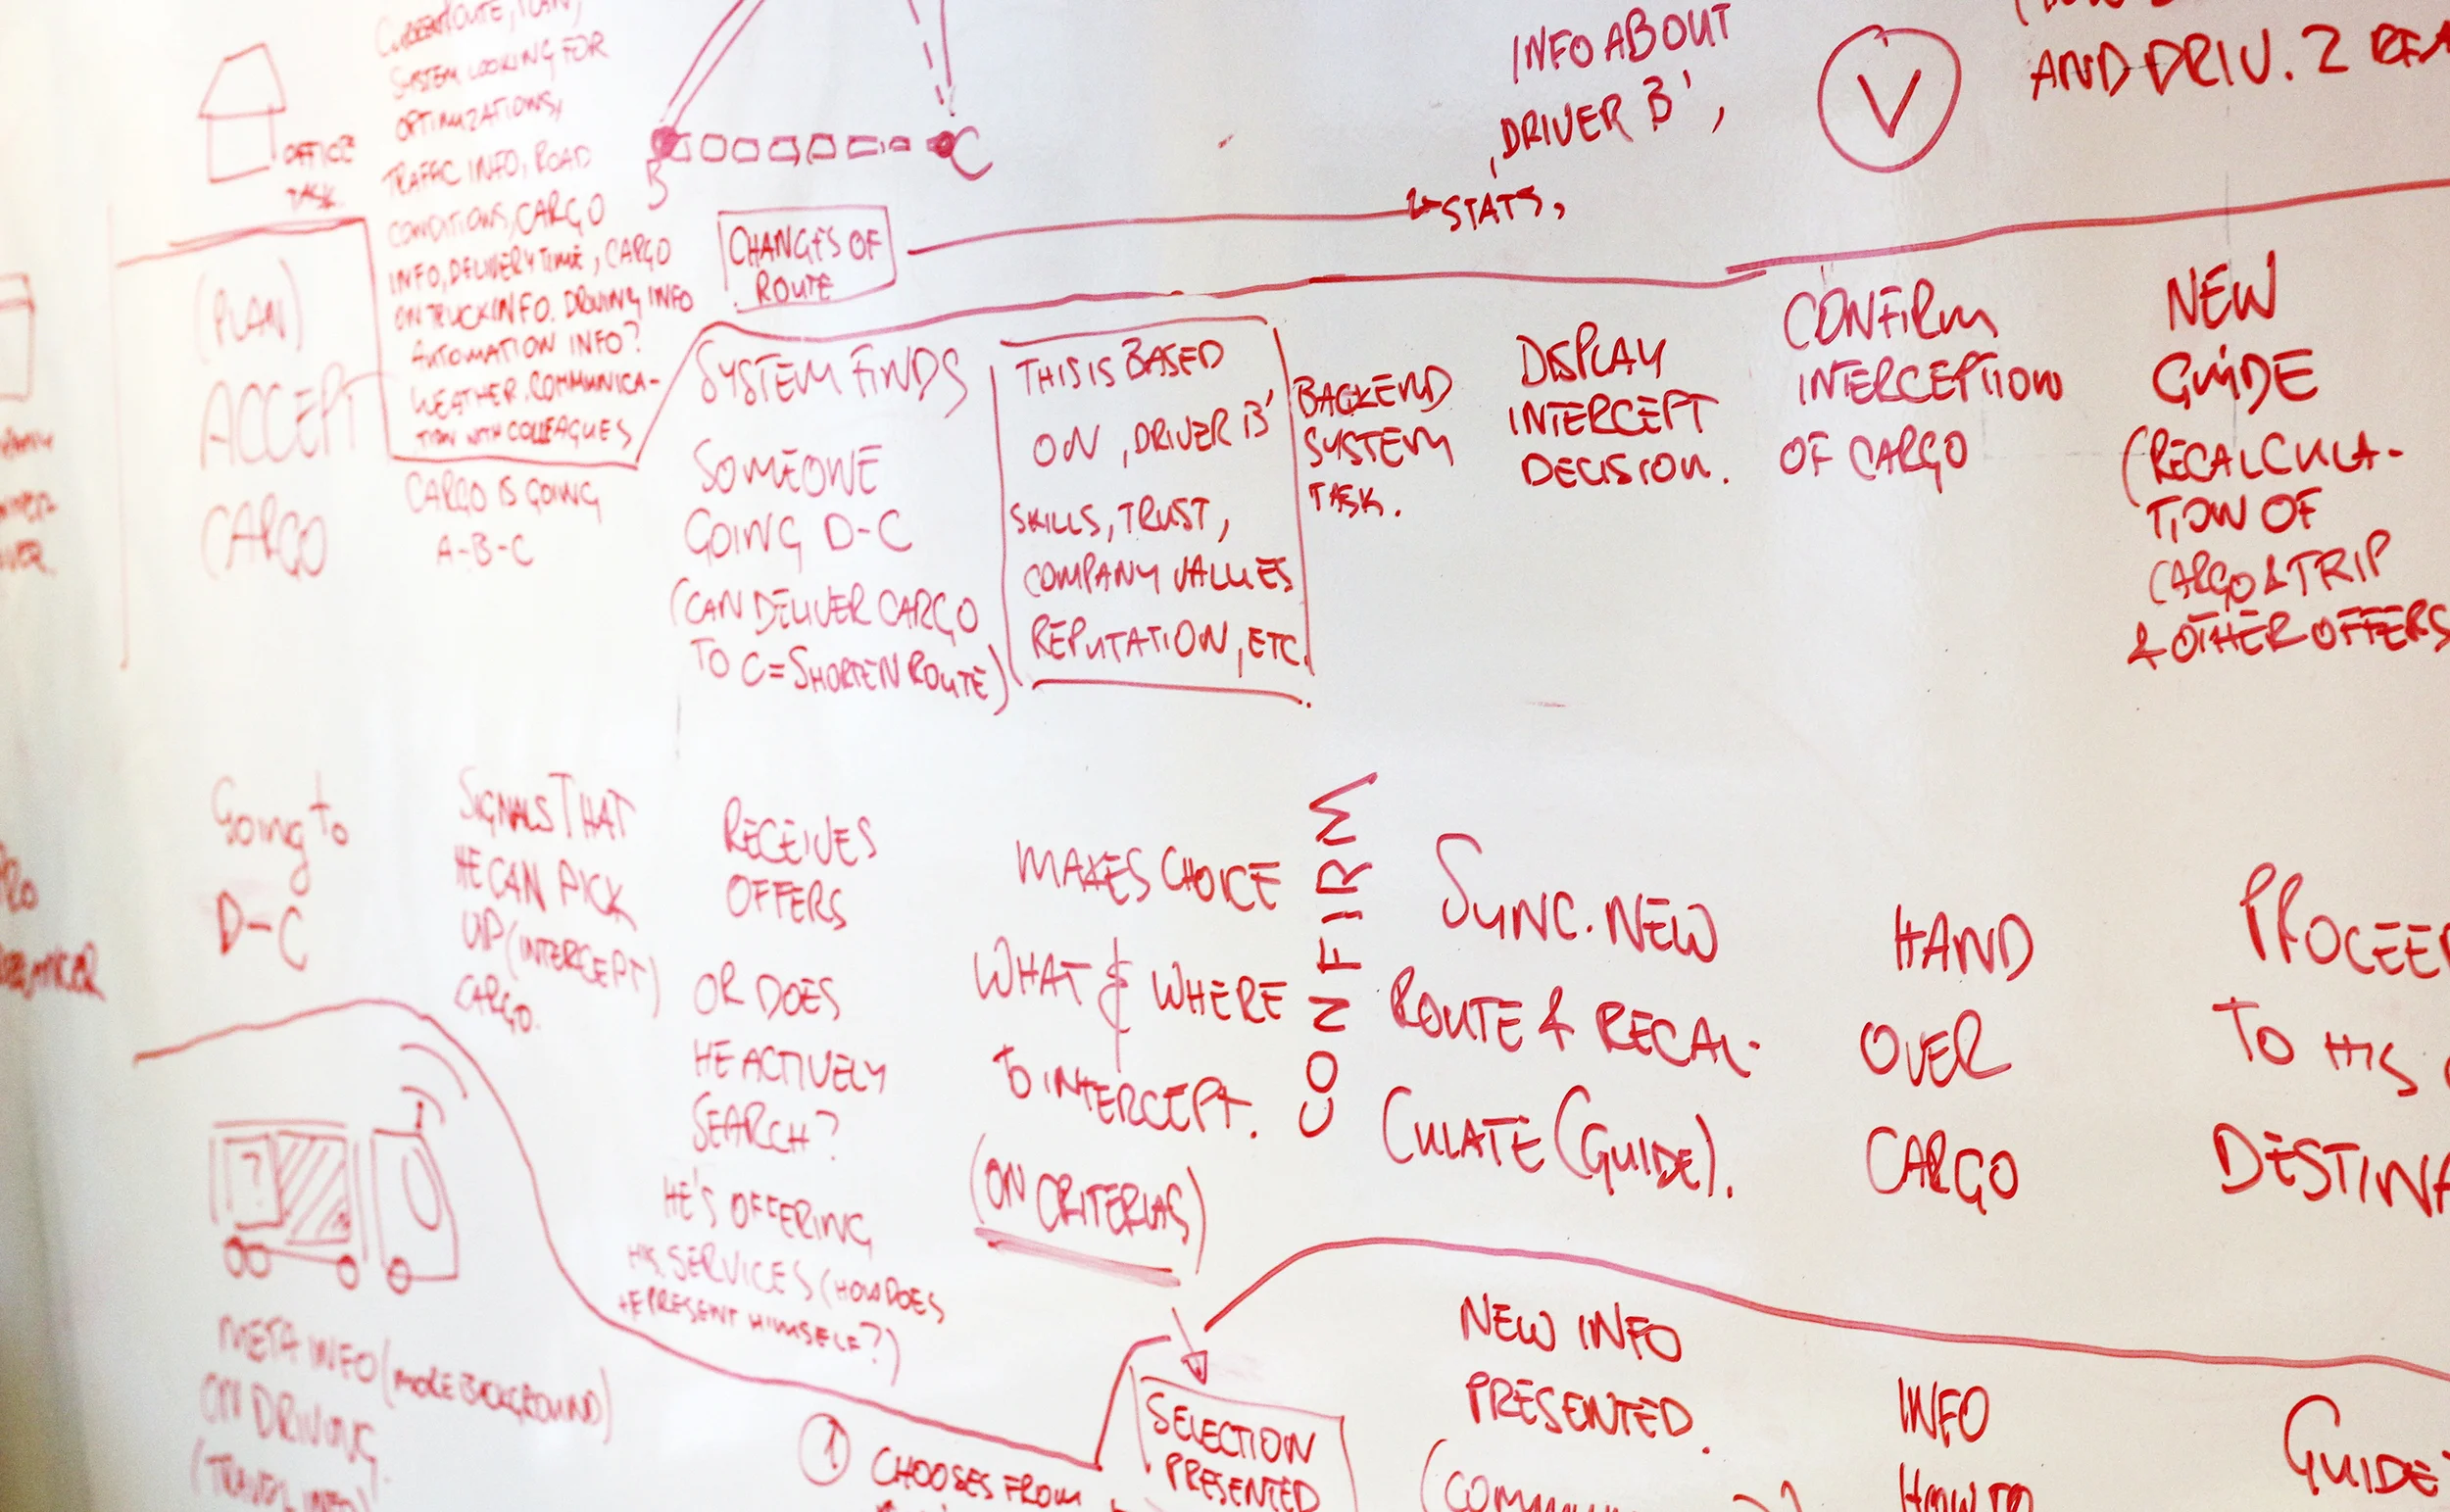 SYSTEM LOOKING FOR
OPTIMIZATIONS,
TRAFFIC INFO, ROAD
CONDITIONS, CARGO
INFO, DELIVERY TIME, CARGO
ON TRUCK INFO. DRIVING INFO
AUTOMATION INFO?
WEATHER, COMMUNICA-
TION WITH COLLEAGUES
OFFICE
TASK
B
C
CHANGES OF
ROUTE
INFO ABOUT
,DRIVER B',
STATS,
V
AND DRIV. 2
(PLAN)
ACCEPT
CARGO
CARGO IS GOING
A-B-C
SYSTEM FINDS
SOMEONE
GOING D-C
(CAN DELIVER CARGO
TO C = SHORTEN ROUTE)
THIS IS BASED
ON ,DRIVER B'
SKILLS, TRUST,
COMPANY VALUES
REPUTATION, ETC.
BACKEND
SYSTEM
TASK.
DISPLAY
INTERCEPT
DECISION.
CONFIRM
INTERCEPTION
OF CARGO
NEW
GUIDE
(RECALCULA-
TION OF
CARGO & TRIP
& OTHER OFFERS
Going to
D-C
SIGNALS THAT
HE CAN PICK
UP (INTERCEPT)
CARGO.
RECEIVES
OFFERS
OR DOES
HE ACTIVELY
SEARCH?
HE'S OFFERING
HIS SERVICES (HOW DOES
HE PRESENT HIMSELF?)
MAKES CHOICE
WHAT & WHERE
TO INTERCEPT.
(ON CRITERIAS)
CONFIRM
SYNC. NEW
ROUTE & RECAL-
CULATE (GUIDE).
HAND
OVER
CARGO
PROCEED
TO HIS
DESTINA
?
META INFO (MORE BACKGROUND)
ON DRIVING
(TRAVEL INFO)
1 CHOOSES FROM
SELECTION
PRESENTED
NEW INFO
PRESENTED.
INFO
HOW TO
GUIDE